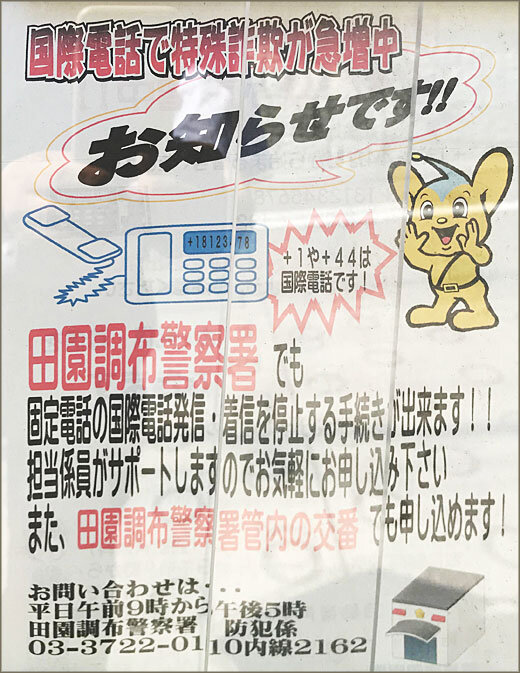 国際電話で特殊詐欺が急増中
お知らせです!!
+18123478
+1や+44は
国際電話です!
田園調布警察署でも
固定電話の国際電話発信・着信を停止する手続きが出来ます!!
担当係員がサポートしますのでお気軽にお申し込み下さい
また、田園調布警察署管内の交番でも申し込めます!
お問い合わせは・・・
平日午前9時から午後5時
田園調布警察署 防犯係
03-3722-0110内線2162